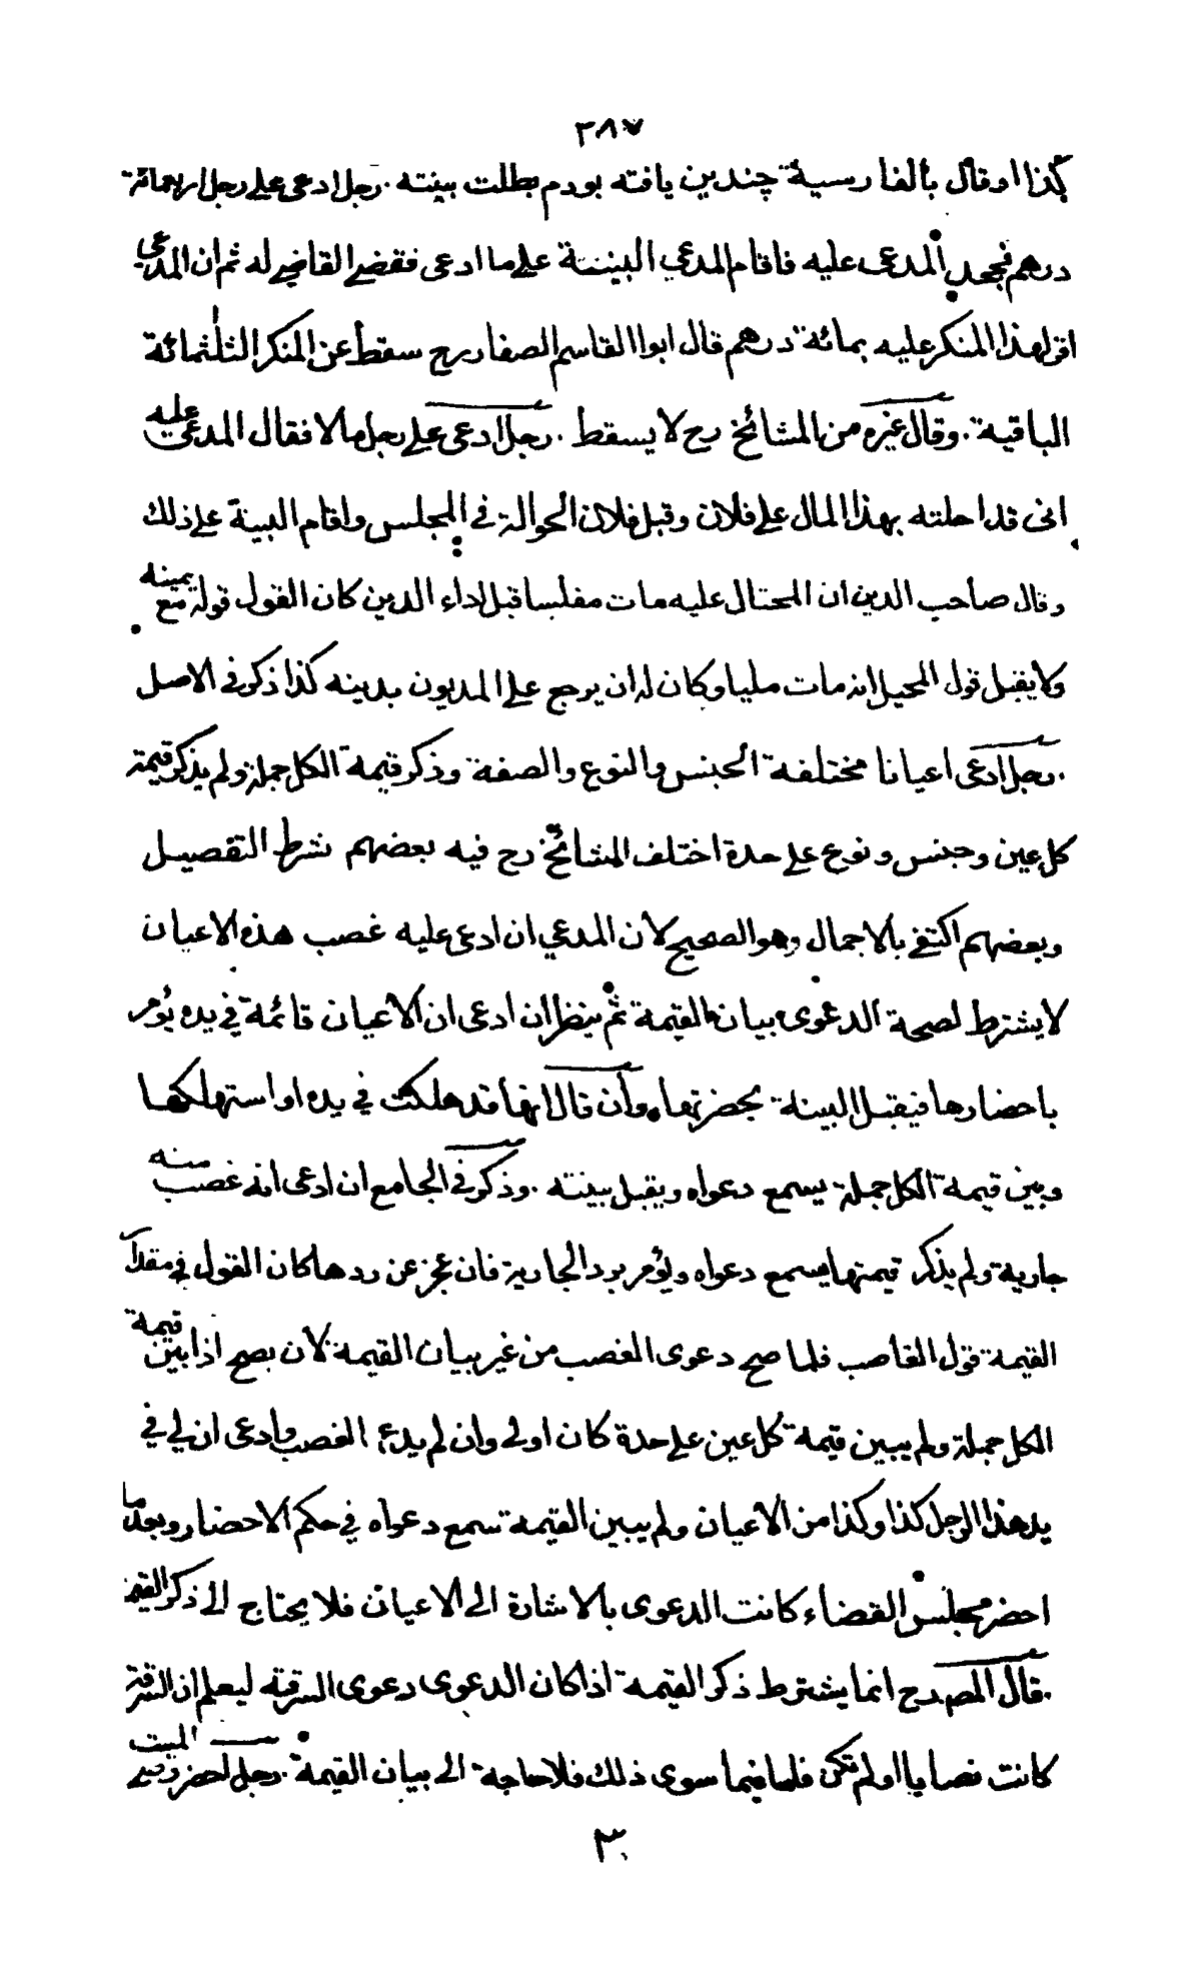 ٣٨٧
كذا او قال بالفارسية چندين يافته بودم بطلت بينته . رجل ادعى على رجل اربعمائة
درهم فجحد المدعى عليه فاقام المدعي البينة على ما ادعى فقضى القاضي له ثم ان المدعي
اقر لهذا المنكر عليه بمائة درهم قال ابوا القاسم الصفار رح سقط عن المنكر الثلثمائة
الباقية . وقال غيره من المشائخ رح لا يسقط . رجل ادعى على رجل مالا فقال المدعى عليه
انى قد احلته بهذا المال على فلان وقبل فلان الحوالة في المجلس واقام البينة على ذلك
وقال صاحب الدين ان المحتال عليه مات مفلسا قبل اداء الدين كان القول قوله مع يمينه
ولا يقبل قول المحيل انه مات مليا وكان له ان يرجع على المديون بدينه كذا ذكر في الاصل
. رجل ادعى اعيانا مختلفة الجنس والنوع والصفة وذكر قيمة الكل جملة ولم يذكر قيمة
كل عين وجنس ونوع على حدة اختلف المشائخ رح فيه بعضهم شرط التفصيل
وبعضهم اكتفى بالاجمال وهو الصحيح لان المدعي ان ادعى عليه غصب هذه الاعيان
لا يشترط لصحة الدعوى بيان القيمة ثم ينظر ان ادعى ان الاعيان قائمة في يده يؤمر
باحضارها فيقبل البينة بحضرتها . وان قال انها قد هلكت في يده او استهلكها
وبين قيمة الكل جملة يسمع دعواه ويقبل بينته . وذكر في الجامع ان ادعى انه غصب منه
جارية ولم يذكر قيمتها يسمع دعواه ويؤمر برد الجارية فان عجز عن ردها كان القول في مقدار
القيمة قول الغاصب فلما صح دعوى الغصب من غير بيان القيمة لان يصح اذا بين قيمة
الكل جملة ولم يبين قيمة كل عين على حدة كان اولى وان لم يدع الغصب وادعى ان لي في
يد هذا الرجل كذا وكذا من الاعيان ولم يبين القيمة تسمع دعواه في حكم الاحضار وبعد ما
احضر مجلس القضاء كانت الدعوى بالاشارة الى الاعيان فلا يحتاج الى ذكر القيمة
. قال المصـ رح انما يشترط ذكر القيمة اذا كان الدعوى دعوى السرقة ليعلم ان السرقة
كانت نصابا او لم تكن فلما فيما سوى ذلك فلا حاجة الى بيان القيمة . رجل احضر وصي الميت
٣